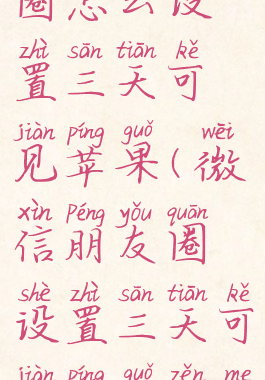 圈怎么设
zhì sān tiān kě
置三天可
jiàn píng guǒ wēi
见苹果(微
xìn Péng yǒu quān
信朋友圈
shè zhì sān tiān kě
设置三天可
jiàn píng guǒ zěn me